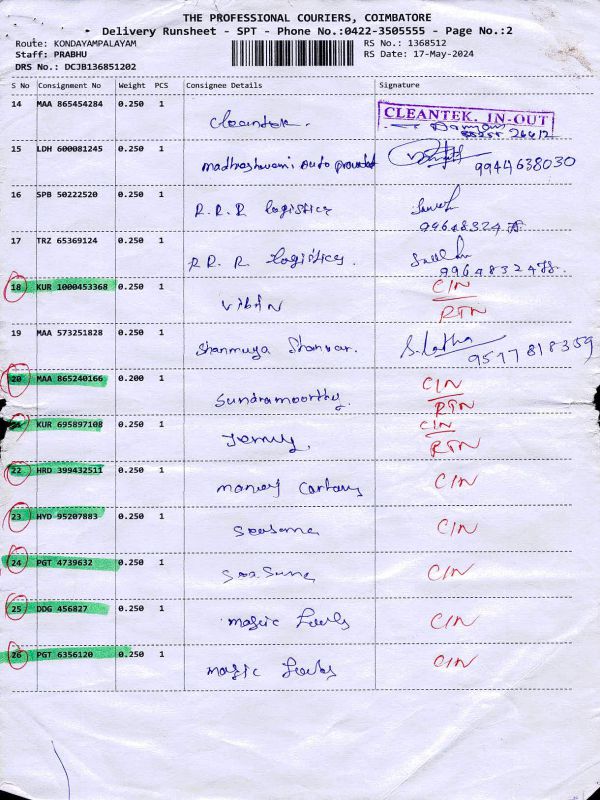 THE PROFESSIONAL COURIERS, COIMBATORE
Delivery Runsheet - SPT - Phone No.:0422-3505555 - Page No.:2
Route: KONDAYAMPALAYAM
RS No.: 1368512
Staff: PRABHU
RS Date: 17-May-2024
DRS No.: DCJB136851202
S No Consignment No Weight PCS Consignee Details Signature
14 MAA 865454284 0.250 1 Cleantek. CLEANTEK, IN-OUT
15 LDH 600081245 0.250 1 9944638030
16 SPB 50222520 0.250 1 R.R.R logistics
99648324 78
17 TRZ 65369124 0.250 1 R.R.R logistics.
9964832478.
18 KUR 1000453368 0.250 1 Vibin C/N
RTN
19 MAA 573251828 0.250 1 Shanmuga Shankar. S. Latha
9517818359
20 MAA 865240166 0.200 1 Sundramoorthy. C/N
RTN
21 KUR 695897108 0.250 1 C/N
RTN
22 HRD 399432511 0.250 1 C/N
23 HYD 95207883 0.250 1 C/N
24 PGT 4739632 0.250 1 C/N
25 DDG 456827 0.250 1 magic C/N
26 PGT 6356120 0.250 1 magic C/N